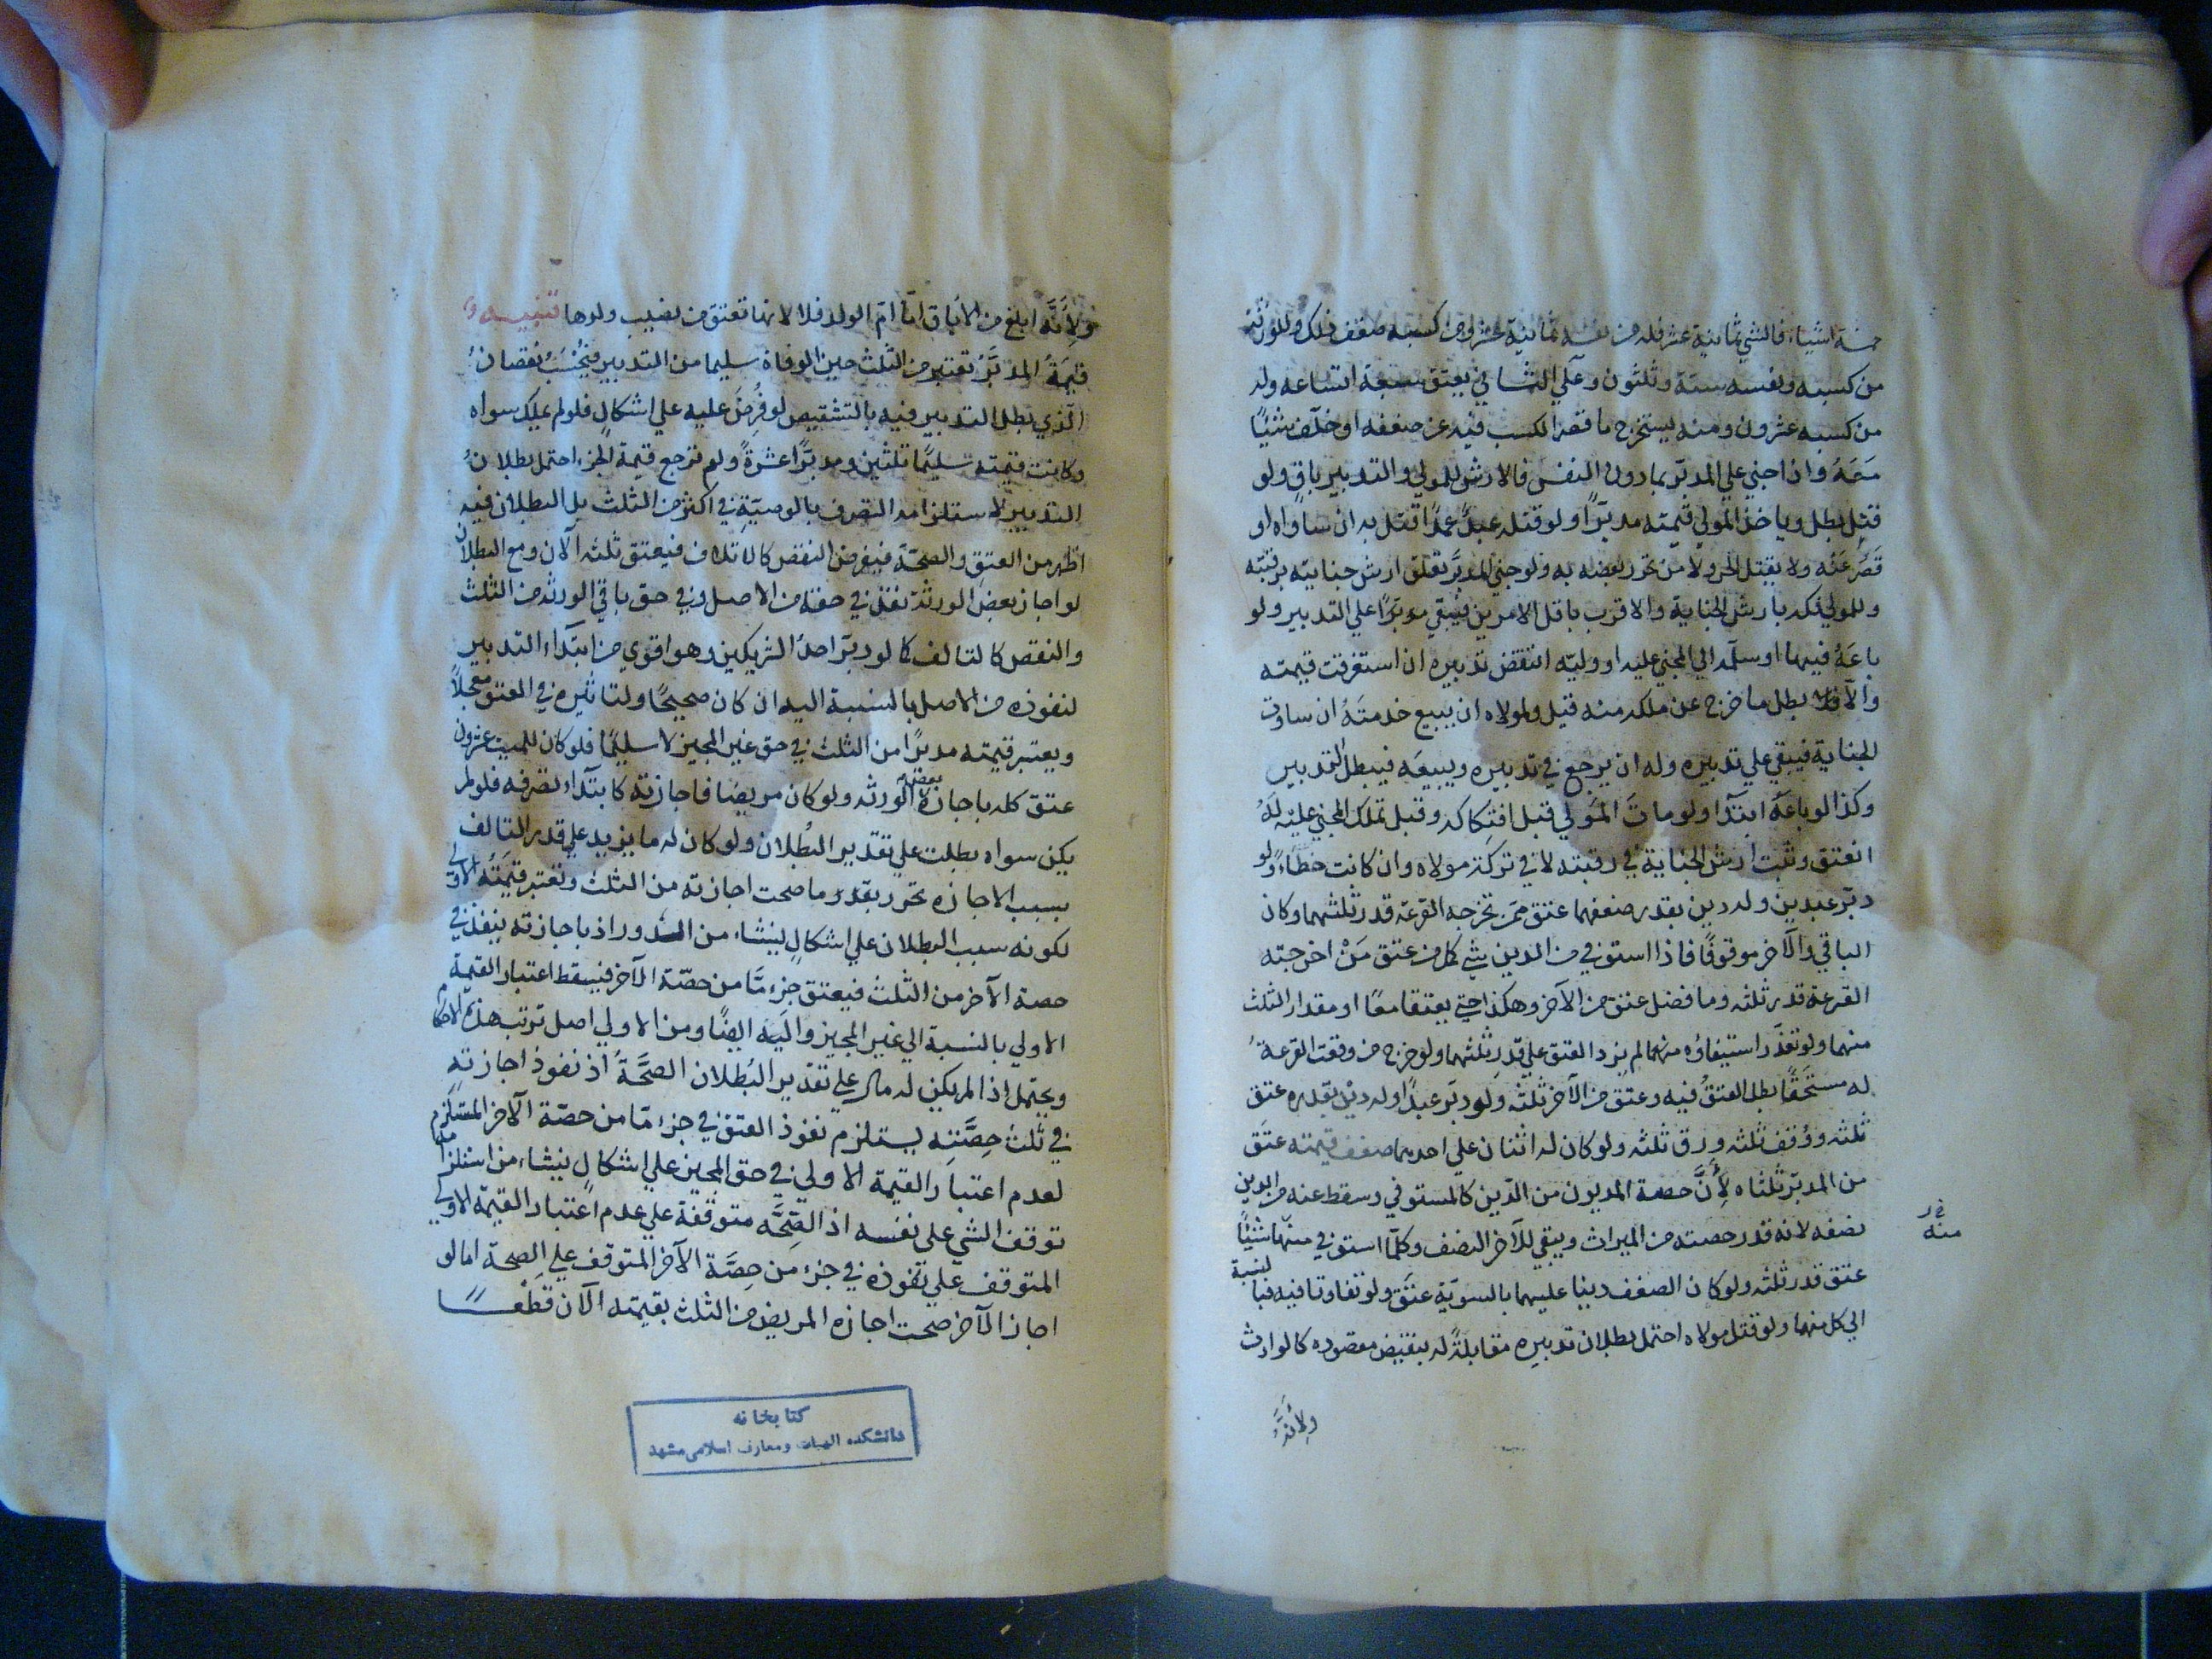 خمسة اشياء فالشي ثمانية عشر فله من نفسه ثمانية عشر ومن كسبه ضعف ذلك وللورثة
من كسبه ونفسه ستة وثلثون وعلي الثاني يعتق سبعة اتساعه وله
من كسبه عشرون ومنه يستخرج ما قصر الكسب فيه عن ضعفه او خلف شيئًا
معَهُ واذا جني علي المدبّر بما دون النفس فالارش للمولي والتدبير باقٍ ولو
قتل بطل وياخذ المولي قيمته مدبّرًا ولو قتله عبدٌ عمدًا قتل به ان ساواه او
قَصُر عَنْه ولا يقتل الحر ولا من تحرر بعضه به ولو جني المدبَّر تعلّق ارش جنايته برقبته
وللمولي فكه بارش الجناية والاقرب باقل الامرين فيبقي مدبَّرًا علي التدبير ولو
باعَهُ فيها او سلّمه الي المجني عليه او وليّه انتقض تدبيره ان استغرقت قيمته
والا فلا بطل ما خرج عن ملكه منه قيل ولمولاه ان يبيع خدمتَهُ ان ساوت
الجناية فيبقي علي تدبيره وله ان يرجع في تدبيره ويبيعَه فيبطل التدبير
وكذا لو باعَهُ ابتدًا ولو ماتَ المَولي قبل افتكاكه وقبل تملك المجني عليْه لَهُ
انعتق وثبت ارش الجناية في رقبته لا في تركة مولاه وان كانت خطاءً ولو
دبّر عبدين وله دين بقدر ضعفهما عتق ممّن تخرجه القرعة قدر ثلثهما وكان
الباقي والآخر موقوفًا فاذا استوفي من الدين شي كمل من عتق مَنْ اخرجته
القرعة قدر ثلثه وما فضل عتق من الآخر وهكذا حتي يعتقا معًا او مقدار الثلث
منهما ولو تعذّر استيفاؤه منهما لم يزد العتق علي قدر ثلثهما ولو خرج من وقعت القرعةُ
له مستحَقًا بطل العتقُ فيه وعتق من الآخر ثلثه ولو دبّر عبدًا وله ديْن بقدره عتق
ثلثه ووُقف ثلثه ورق ثلثه ولو كان له اثنان علي احدهما ضعف قيمته عتَق
من المدبّر ثلثاه لِأنَّ حصة المديون من الدّين كالمستوفي وسقط عنه من الدين
نصفه لانه قدر حصته من الميراث ويبقي للآخر النصف وكلّما استوفي منها شيئًا
في ر
منه
عتق قدر ثلثه ولو كان الضعف دينا عليهما بالسويّة عتَق ولو تفاوتا فيه فبالنسبة
الي كل منهما ولو قتل مولاه احتمل بطلان تدبيره مقابلةً له بنقيض مقصوده كالوارث
ولِأنَّهُ
ولِأنَّهُ ابلغ من الاباق امّا امّ الولد فلا لانها تعتق من نصيب ولدها تنبيــه
قيمَةُ المدبَّر تعتبر من الثلث حين الوفاة سليما من التدبير فيُحْسَبُ نقصانُ
الّذي بطل التدبير فيه بالتشقيص لو فُرِضَ عليه علي اشكالٍ فلو لم يملك سواه
وكانت قيمته سليمًا ثلثين ومدبّرًا عشرةً ولم ترجع قيمة الجزء احتمل بطلانُ
التدبير لاستلزامه التصرف بالوصيّة في اكثر من الثلث بل البطلان فيه
اظهر من العتق والصحّة فيفرض النقص كالاتلاف فيعتق ثلثه الآن ومع البطلان
لو اجاز بعض الورثة نفذ في حقه من الاصل وفي حق باقي الورثة من الثلث
والنقص كالتالف كما لو دبّر احدُ الشريكين وهو اقوي من ابتداء التدبير
لنفوذه من الاصل بالنسبة اليه ان كان صحيحًا ولتاثيره في العتق معجلاً
ويعتبر قيمته مدبّرًا من الثلث في حق غير المجيز لا سليمًا فلو كان للميت عشرون
عتق كله باجازة بعض الورثه ولو كان مريضا فاجازته كابتداء تصرفه فلو لم
يكن سواه بطلت علي تقدير البُطلان ولو كان له ما يزيد علي قدر التالف
بسبب الاجازه تحرر بقدر ما صحت اجازته من الثلث وتعتبر قيمَتُه الاولي
لكونه سبب البطلان علي اشكالٍ ينشاء من الدور اذ باجازته ينفذ في
حصة الآخر من الثلث فيعتق جزءٍ مّا من حصّة الآخر فيسقط اعتبار القيمة
الاولي بالنسبة الي غير المجيز واليه ايضًا ومن الاولي اصل ترتب هذه الاحكام
ويحتمل اذا لم يكن له مال علي تقدير البُطلان الصحَّةَ اذ نفوذ اجازته
في ثلث حِصَّتِه يستلزم نفوذ العتق في جزء مّا من حصّة الآخر المستلزم
لعدم اعتبار القيمة الاولي في حق المجيز علي اشكالٍ ينشاء من استلزامها
توقف الشي علي نفسه اذ الصّحّه متوقفة علي عدم اعتبار القيمة الاولي
المتوقف علي نفوذه في جزء من حِصَّة الآخر المتوقف علي الصحة اما لو
اجاز الآخر صحت اجازه المريض من الثلث بقيمته الآن قطعًــا
كتابخانه
دانشكده الهيات ومعارف اسلامى مشهد